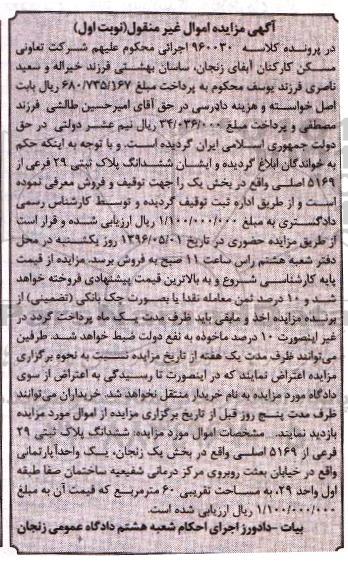 آگهی مزایده اموال غیر منقول(نوبت اول)
در پرونده کلاسه ۹۶۰۰۳۰ اجرائی محکوم علیهم شرکت تعاونی
مسکن کارکنان آبفای زنجان، ساسان بهشتی فرزند خیراله و سعید
ناصری فرزند یوسف محکوم به پرداخت مبلغ ۶۸۰/۷۳۵/۱۶۷ ریال بابت
اصل خواسته و هزینه دادرسی در حق آقای امیرحسین طالشی فرزند
مصطفی و پرداخت مبلغ ۳۴/۰۳۶/۰۰۰ ریال نیم عشر دولتی در حق
دولت جمهوری اسلامی ایران گردیده است. و با توجه به اینکه حکم
به خواندگان ابلاغ گردیده و ایشان ششدانگ پلاک ثبتی ۲۹ فرعی از
۵۱۶۹ اصلی واقع در بخش یک را جهت توقیف و فروش معرفی نموده
است و از طریق اداره ثبت توقیف گردیده و توسط کارشناس رسمی
دادگستری به مبلغ ۱/۱۰۰/۰۰۰/۰۰۰ ریال ارزیابی شده و قرار است
از طریق مزایده حضوری در تاریخ ۱۳۹۶/۰۵/۰۱ روز یکشنبه در محل
دفتر شعبه هشتم راس ساعت ۱۱ صبح به فروش برسد. مزایده از قیمت
پایه کارشناسی شروع و به بالاترین قیمت پیشنهادی فروخته خواهد
شد و ۱۰ درصد ثمن معامله نقدا یا بصورت چک بانکی (تضمینی) از
برنده مزایده اخذ و مابقی باید ظرف مدت یک ماه پرداخت گردد در
غیر اینصورت ۱۰ درصد ماخوذه به نفع دولت ضبط خواهد شد. طرفین
می‌توانند ظرف مدت یک هفته از تاریخ مزایده نسبت به نحوه برگزاری
مزایده اعتراض نمایند که در اینصورت تا رسیدگی به اعتراض از سوی
دادگاه مورد مزایده به نام خریدار منتقل نخواهد شد. خریداران می‌توانند
ظرف مدت پنج روز قبل از تاریخ برگزاری مزایده از اموال مورد مزایده
بازدید نمایند. مشخصات اموال مورد مزایده: ششدانگ پلاک ثبتی ۲۹
فرعی از ۵۱۶۹ اصلی واقع در بخش یک زنجان، یک واحدآپارتمانی
واقع در خیابان بعثت روبروی مرکز درمانی شفیعیه ساختمان صفا طبقه
اول واحد ۲۹، به مساحت تقریبی ۶۰ مترمربع که قیمت آن به مبلغ
۱/۱۰۰/۰۰۰/۰۰۰ ریال ارزیابی شده است.
بیات -دادورز اجرای احکام شعبه هشتم دادگاه عمومی زنجان